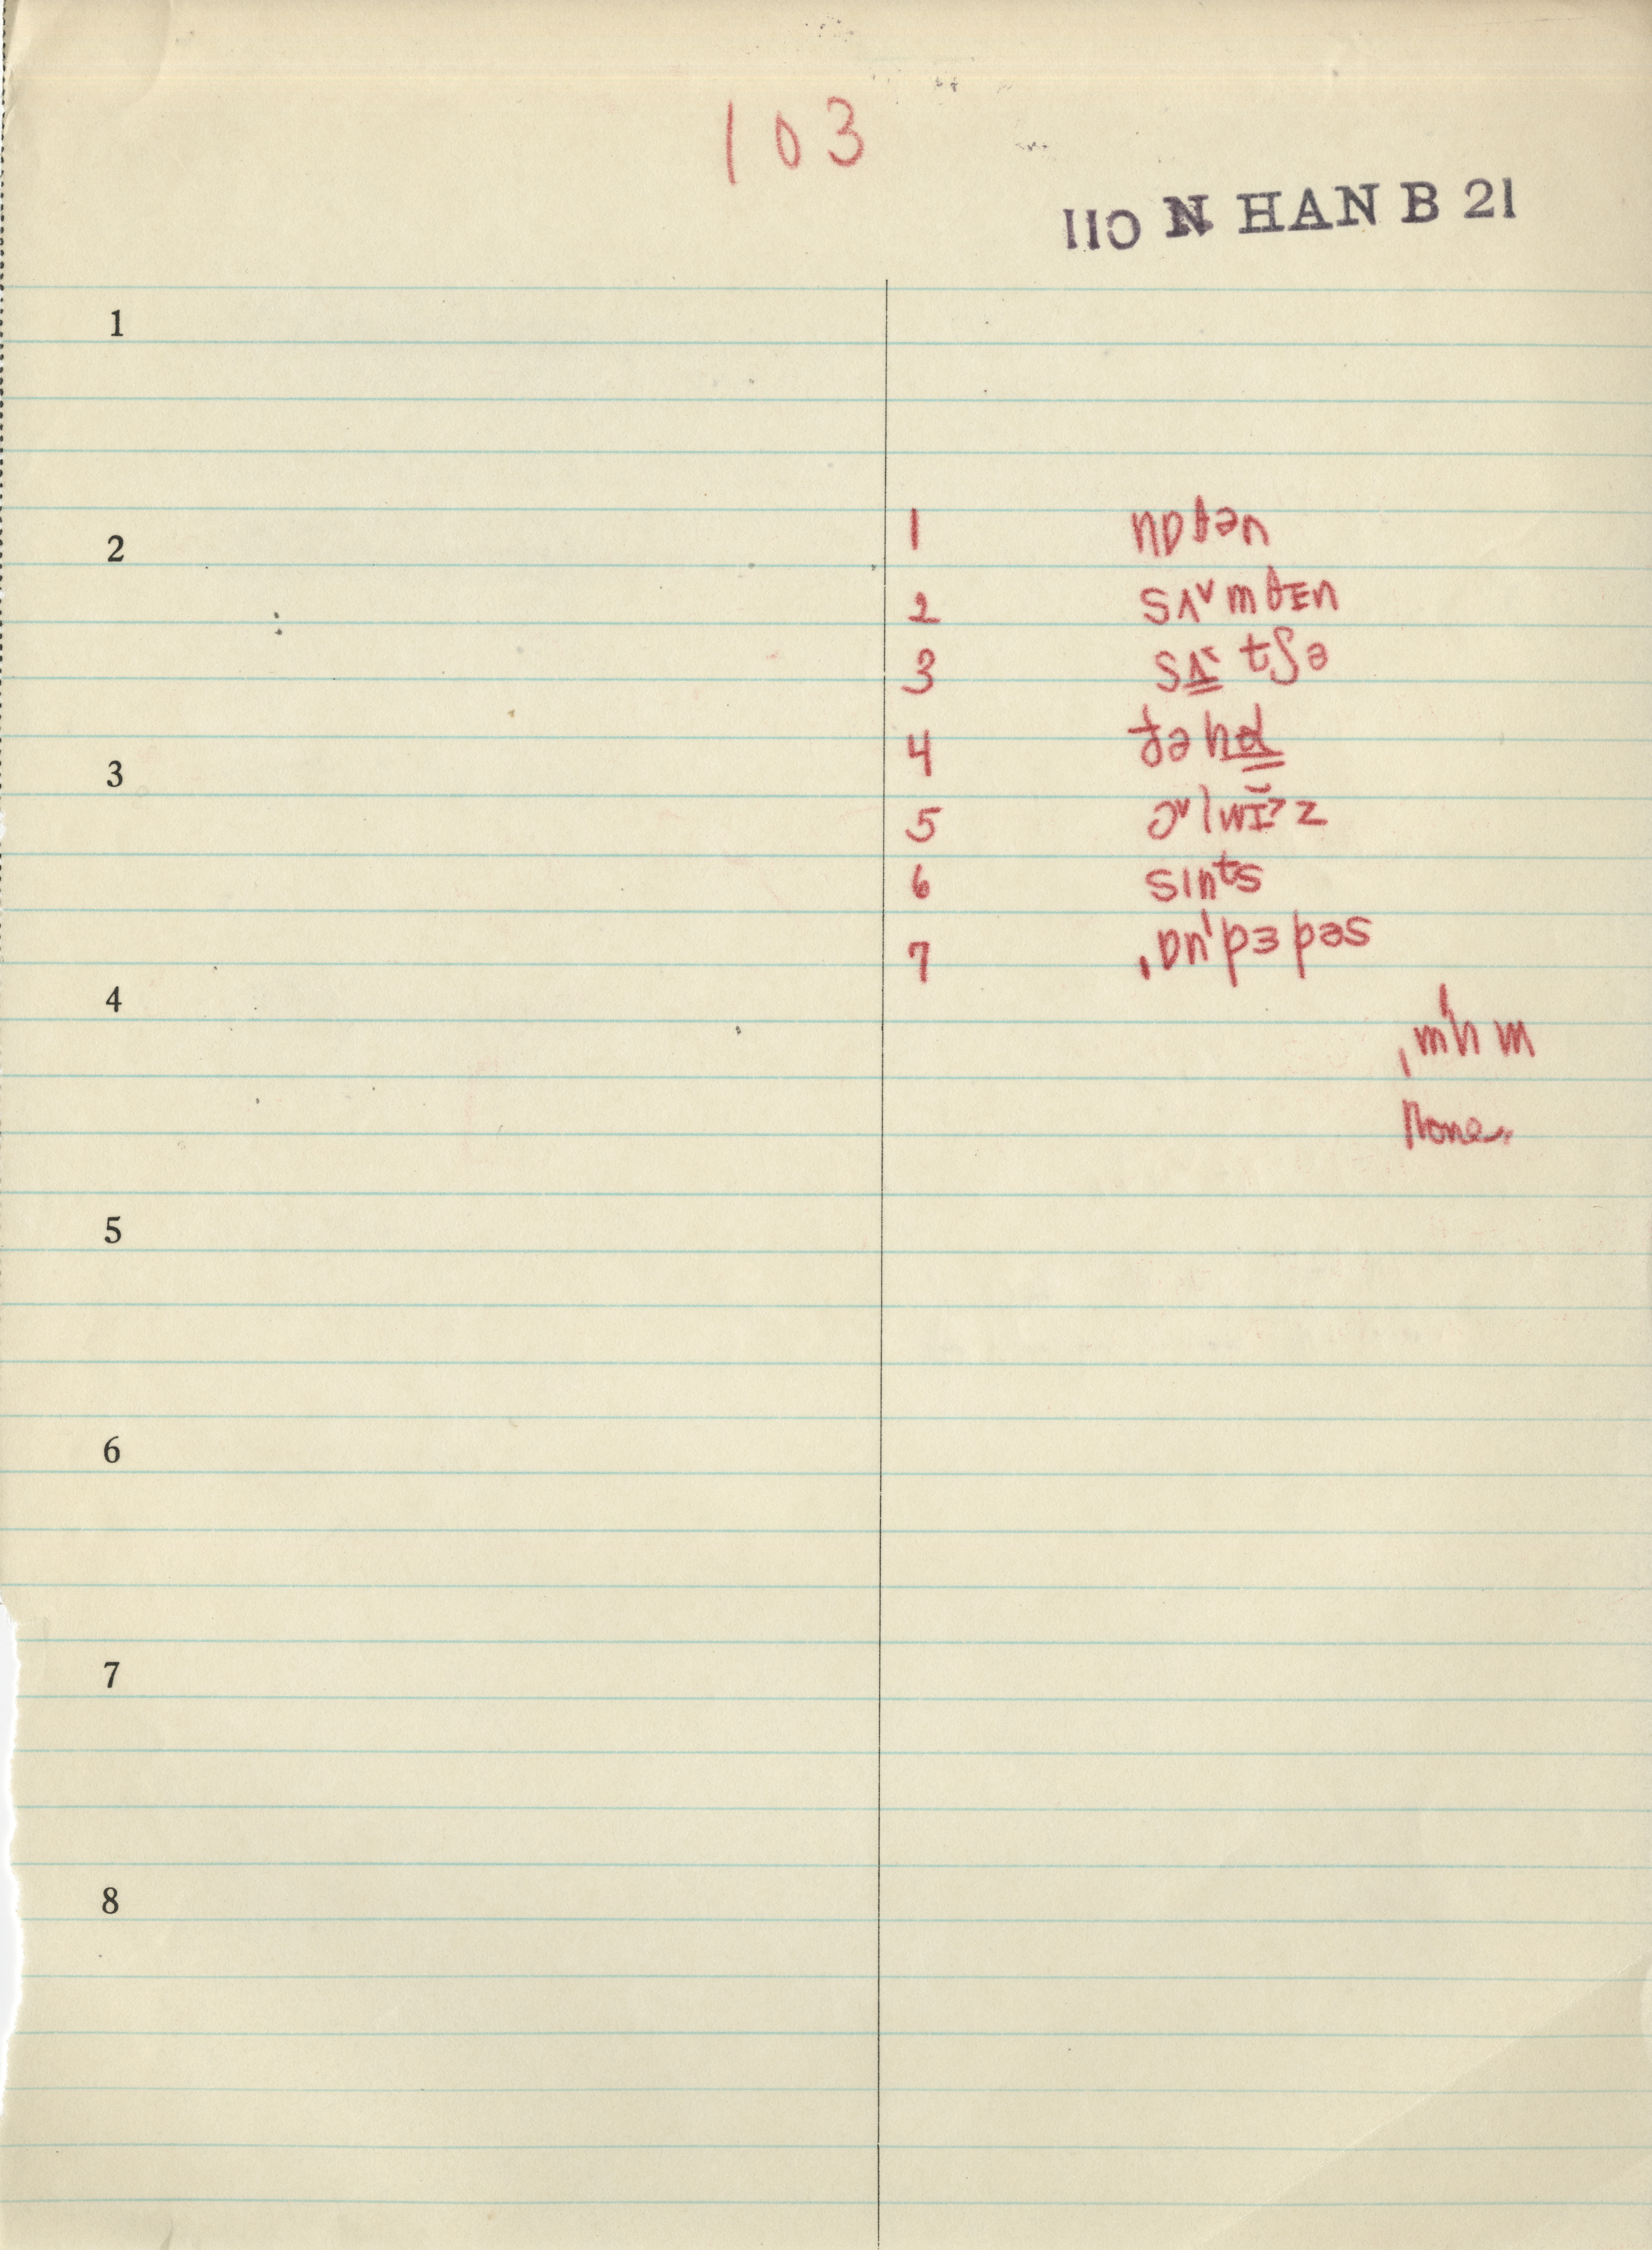 103
110 N HAN B 21
1
1 nɒθən
2
2 sʌ˅mθɪn
3 sʌ̳˂ tʃə
4 tə̬hɑ̳
3
5 ɔ˅lwɪ̆˃z
6 sɪnᵗs
7 ˌɒnˈpɜpəs
4
ˌmˈhm
None.
5
6
7
8